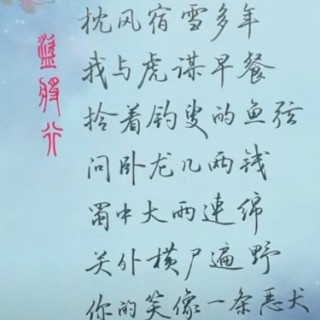 盗将行
枕风宿雪多年
我与虎谋早餐
拎着钓叟的鱼弦
问卧龙几两钱
蜀中大雨連绵
关外横尸遍野
你的笑像一条恶犬